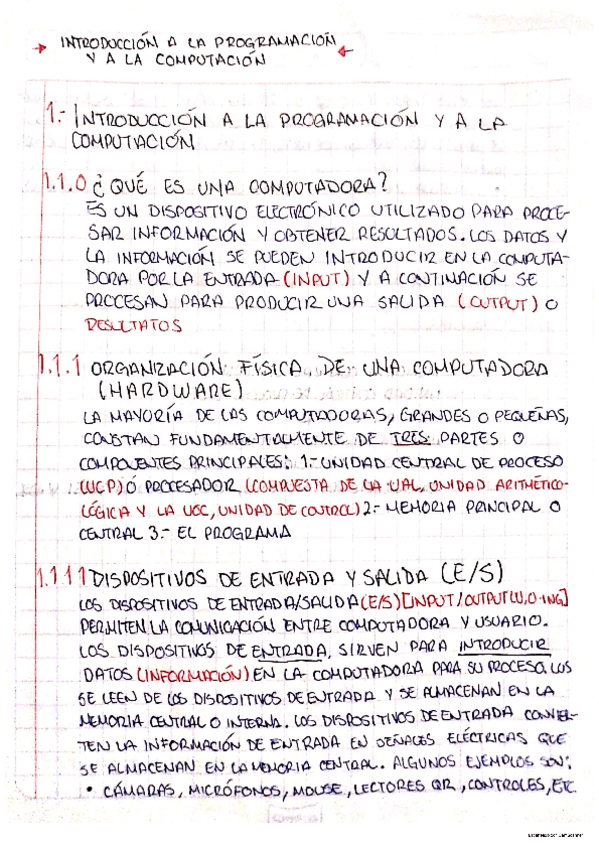 INTRODUCCIÓN A LA PROGRAMACIÓN
Y A LA COMPUTACIÓN
1.- INTRODUCCIÓN A LA PROGRAMACIÓN Y A LA
COMPUTACIÓN
1.1.0 ¿QUÉ ES UNA COMPUTADORA?
ES UN DISPOSITIVO ELECTRÓNICO UTILIZADO PARA PROCE-
SAR INFORMACIÓN Y OBTENER RESULTADOS. LOS DATOS Y
LA INFORMACIÓN SE PUEDEN INTRODUCIR EN LA COMPUTA-
DORA POR LA ENTRADA (INPUT) Y A CONTINACIÓN SE
PROCESAN PARA PRODUCIR UNA SALIDA (OUTPUT) O
RESULTATOS
1.1.1 ORGANIZACIÓN FÍSICA DE UNA COMPUTADORA
(HARDWARE)
LA MAYORÍA DE LAS COMPUTADORAS, GRANDES O PEQUEÑAS,
CONSTAN FUNDAMENTALMENTE DE TRES PARTES O
COMPONENTES PRINCIPALES: 1.- UNIDAD CENTRAL DE PROCESO
(UCP) Ó PROCESADOR (COMPUESTA DE LA UAL, UNIDAD ARITMÉTICO-
LÓGICA Y LA UGC, UNIDAD DE CONTROL) 2.- MEMORIA PRINCIPAL O
CENTRAL 3.- EL PROGRAMA
1.1.1.1 DISPOSITIVOS DE ENTRADA Y SALIDA (E/S)
LOS DISPOSITIVOS DE ENTRADA/SALIDA (E/S) [INPUT/OUTPUT (I/O-ING]
PERMITEN LA COMUNICACIÓN ENTRE COMPUTADORA Y USUARIO.
LOS DISPOSITIVOS DE ENTRADA, SIRVEN PARA INTRODUCIR
DATOS (INFORMACIÓN) EN LA COMPUTADORA PARA SU PROCESO. LOS
SE LEEN DE LOS DISPOSITIVOS DE ENTRADA Y SE ALMACENAN EN LA
MEMORIA CENTRAL O INTERNA. LOS DISPOSITIVOS DE ENTRADA CONVIER-
TEN LA INFORMACIÓN DE ENTRADA EN SEÑALES ELÉCTRICAS QUE
SE ALMACENAN EN LA MEMORIA CENTRAL. ALGUNOS EJEMPLOS SON:
• CÁMARAS, MICRÓFONOS, MOUSE, LECTORES QR, CONTROLES, ETC.